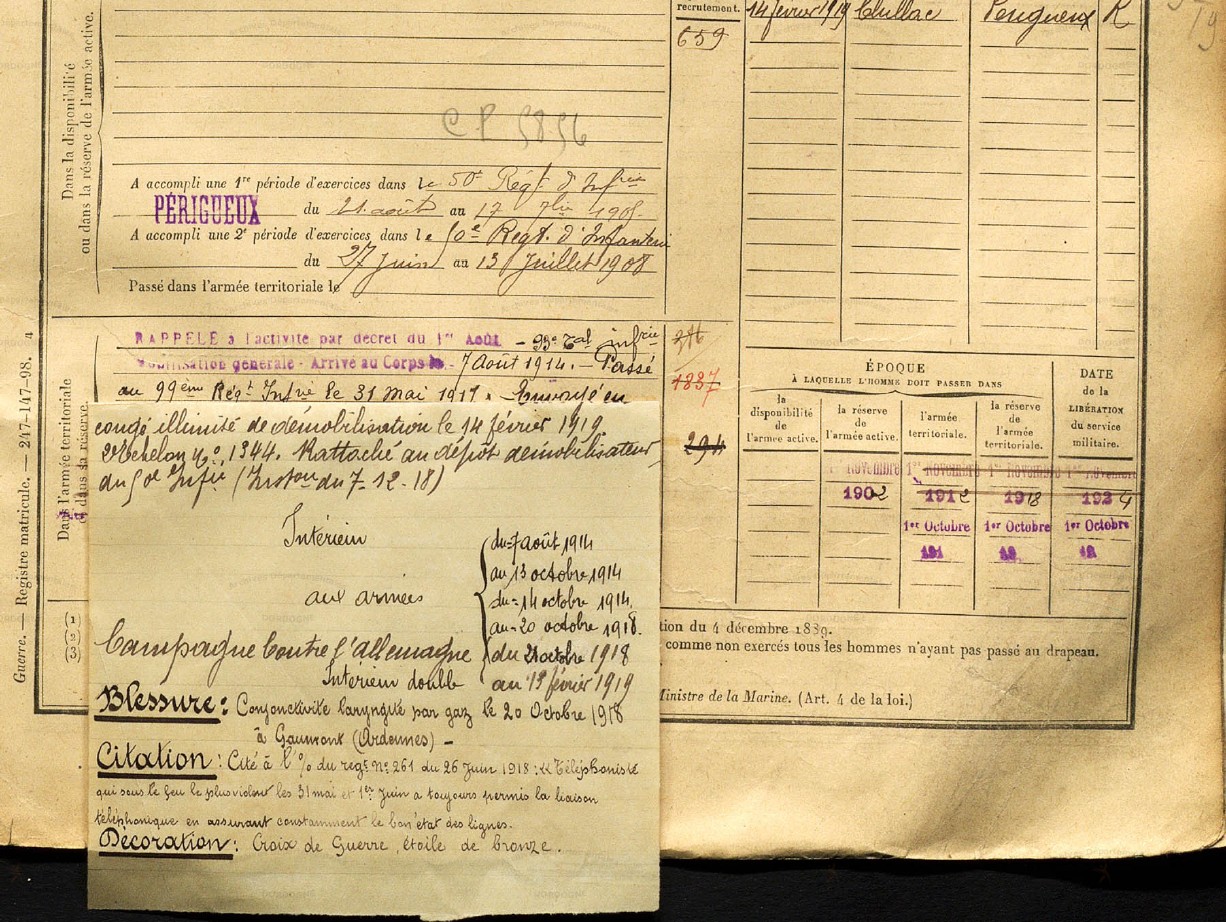 recrutement.
14 fevrier 1919 Chillac Perigueux R
659
19
Dans la disponibilité
ou dans la réserve de l'armée active.
C P 5856
A accompli une 1re période d'exercices dans le 50e Régt d'Infrie
PÉRIGUEUX du 21 août au 17 7bre 1905.
A accompli une 2e période d'exercices dans le 50e Regt. d'Infanterie
du 27 Juin au 13 Juillet 1908
Passé dans l'armée territoriale le
RAPPELÉ à l'activité par décret du 1er Août - 93e Tal infrie
Mobilisation générale - Arrivé au Corps le - 7 Août 1914. - Passé
au 99ème Régt Infrie le 31 Mai 1917. Envoyé en
congé illimité de démobilisation le 14 février 1919
2e Echelon No 1344. Rattaché au dépôt démobilisateur
du 50e Infie (Inston du 7-12-18)
1837
294
Dans l'armée territoriale
et dans sa réserve.
Guerre. — Registre matricule. — 247-147-98. 4
(1)
(2)
(3)
Intérieur
aux armées
Campagne Contre l'allemagne
Intérieur double
du=7 août 1914
au 13 octobre 1914
du=14 octobre 1914.
au=20 octobre 1918.
du 21 octobre 1918
au 13 février 1919
Blessure: Conjonctivite laryngite par gaz le 20 Octobre 1918
à Gaumont (Ardennes) -
Citation: Cité à l'% du regt No 261 du 26 Juin 1918: « Téléphoniste
qui sous le feu le plus violent les 31 mai et 1er Juin a toujours permis la liaison
téléphonique en assurant constamment le bon état des lignes.
Décoration: Croix de Guerre, étoile de bronze.
ÉPOQUE
À LAQUELLE L'HOMME DOIT PASSER DANS
DATE
de la
LIBÉRATION
du service
militaire.
la
disponibilité
de
l'armée active.
la réserve
de
l'armée active.
l'armée
territoriale.
la réserve
de
l'armée
territoriale.
1er novembre 1er novembre 1er novembre 1er novembre
1902 1912 1918 1924
1er Octobre 1er Octobre 1er Octobre
191 19 19
tion du 4 décembre 1889.
comme non exercés tous les hommes n'ayant pas passé au drapeau.
Ministre de la Marine. (Art. 4 de la loi.)